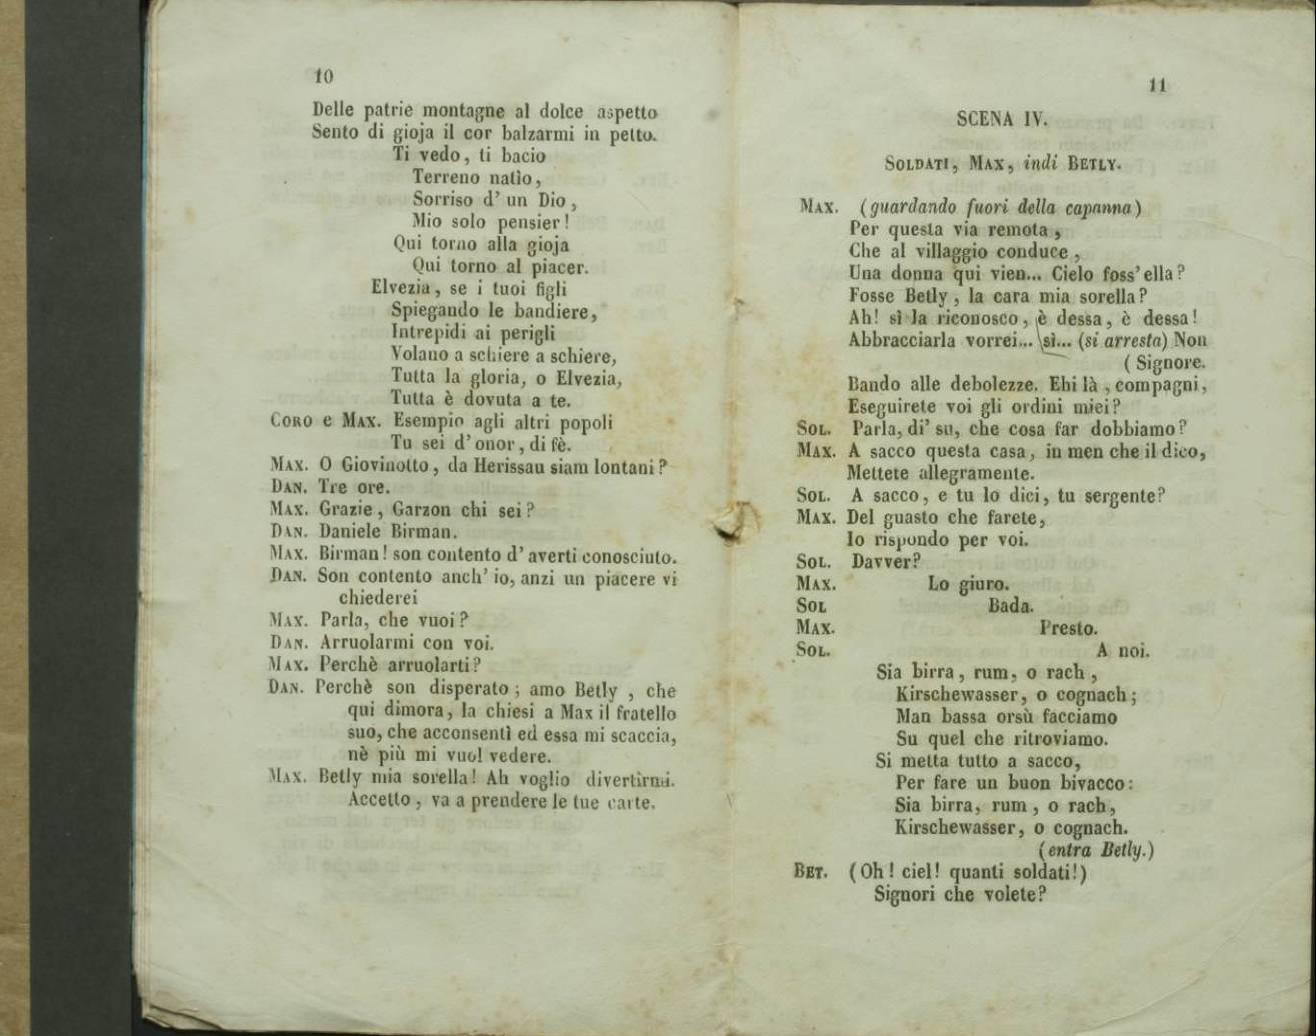 10
Delle patrie montagne al dolce aspetto
Sento di gioja il cor balzarmi in petto.
Ti vedo, ti bacio
Terreno natìo,
Sorriso d' un Dio,
Mio solo pensier!
Qui torno alla gioja
Qui torno al piacer.
Elvezia, se i tuoi figli
Spiegando le bandiere,
Intrepidi ai perigli
Volano a schiere a schiere,
Tutta la gloria, o Elvezia,
Tutta è dovuta a te.
CORO e MAX. Esempio agli altri popoli
Tu sei d' onor, di fè.
MAX. O Giovinotto, da Herissau siam lontani?
DAN. Tre ore.
MAX. Grazie, Garzon chi sei?
DAN. Daniele Birman.
MAX. Birman! son contento d' averti conosciuto.
DAN. Son contento anch' io, anzi un piacere vi
chiederei
MAX. Parla, che vuoi?
DAN. Arruolarmi con voi.
MAX. Perchè arruolarti?
DAN. Perchè son disperato; amo Betly, che
qui dimora, la chiesi a Max il fratello
suo, che acconsentì ed essa mi scaccia,
nè più mi vuol vedere.
MAX. Betly mia sorella! Ah voglio divertirmi.
Accetto, va a prendere le tue carte.
11
SCENA IV.
SOLDATI, MAX, indi BETLY.
MAX. (guardando fuori della capanna)
Per questa via remota,
Che al villaggio conduce,
Una donna qui vien... Cielo foss' ella?
Fosse Betly, la cara mia sorella?
Ah! sì la riconosco, è dessa, è dessa!
Abbracciarla vorrei... sì... (si arresta) Non
(Signore.
Bando alle debolezze. Ehi là, compagni,
Eseguirete voi gli ordini miei?
SOL. Parla, di' su, che cosa far dobbiamo?
MAX. A sacco questa casa, in men che il dico,
Mettete allegramente.
SOL. A sacco, e tu lo dici, tu sergente?
MAX. Del guasto che farete,
Io rispondo per voi.
SOL. Davver?
MAX. Lo giuro.
SOL Bada.
MAX. Presto.
SOL. A noi.
Sia birra, rum, o rach,
Kirschewasser, o cognach;
Man bassa orsù facciamo
Su quel che ritroviamo.
Si metta tutto a sacco,
Per fare un buon bivacco:
Sia birra, rum, o rach,
Kirschewasser, o cognach.
(entra Betly.)
BET. (Oh! ciel! quanti soldati!)
Signori che volete?